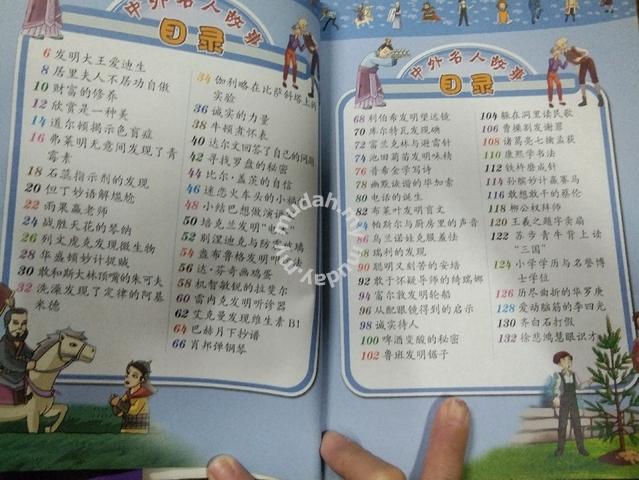 中外名人故事
目录
6 发明大王爱迪生
8 居里夫人不居功自傲
10 财富的修养
12 欣赏是一种美
14 道尔顿揭示色盲症
16 弗莱明无意间发现了青
霉素
18 石蕊指示剂的发现
20 但丁妙语解尴尬
22 雨果赢老师
24 战胜天花的琴纳
26 列文虎克发现微生物
28 华盛顿妙计捉贼
30 敢和斯大林顶嘴的朱可夫
32 洗澡发现了定律的阿基
米德
34 伽利略在比萨斜塔上的
实验
36 诚实的力量
38 牛顿煮怀表
40 达尔文回答了自己的问题
42 寻找罗盘的秘密
44 比尔·盖茨的自信
46 迷恋火车头的小
48 小结巴想做演讲
50 培克兰发明"电
52 别涅迪克与防
玻璃
54 盘布鲁格发明叩
56 达·芬奇画鸡蛋
58 机智敏锐的拉斐尔
60 雷内克发明听诊器
62 艾克曼发现维生素 B1
64 巴赫月下抄谱
66 肖邦弹钢琴
中外名人故事
目录
68 利伯希发明望远镜
70 库尔特瓦发现碘
72 富兰克林与避雷针
74 池田菊苗发明味精
76 普希金学写诗
78 幽默诙谐的毕加索
80 电话的诞生
82 布莱叶发明盲文
84 帕斯尔与厨房里的声音
86 乌兰诺娃克服羞怯
88 瑞利的发现
90 聪明又刻苦的安培
92 敢于怀疑导师的绮瑞娜
94 富尔敦发明轮船
96 从配眼镜得到的启示
98 诚实待人
100 啤酒变酸的秘密
102 鲁班发明锯子
104 躲在洞里读民歌
106 曹操割发谢罪
108 诸葛亮七擒孟获
110 康熙学书法
112 铁杵磨成针
114 孙膑妙计赢赛马
116 敢想敢干的蔡伦
118 柳公权拜师
120 王羲之题字卖扇
122 苏步青牛背上读
"三国"
124 小学学历与名誉博
士学位
126 历尽曲折的华罗庚
128 爱动脑筋的李四光
130 齐白石打假
132 徐悲鸿慧眼识才
mudah.my